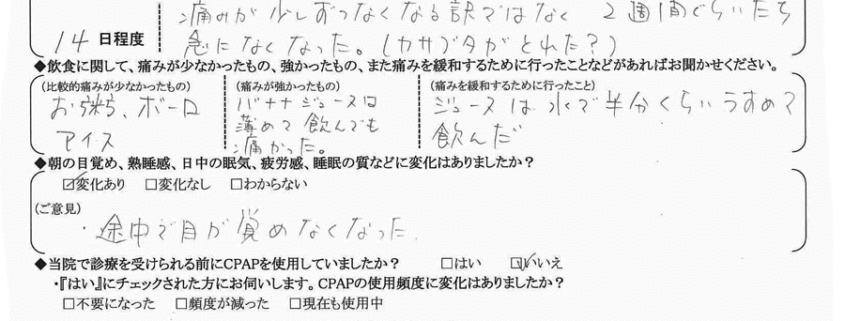 ：痛みが少しずつなくなる訳ではなく 2週間ぐらいたち
14 日程度 急になくなった。(カサブタがとれた?)
◆飲食に関して、痛みが少なかったもの、強かったもの、また痛みを緩和するために行ったことなどがあればお聞かせください。
(比較的痛みが少なかったもの) (痛みが強かったもの) (痛みを緩和するために行ったこと)
お粥、ボーロ バナナジュースは ジュースは水で半分くらいうすめて
アイス 薄めて飲んでも 飲んだ
：痛かった。
◆朝の目覚め、熟睡感、日中の眠気、疲労感、睡眠の質などに変化はありましたか?
☑変化あり □変化なし □わからない
(ご意見)
・途中で目が覚めなくなった.
◆当院で診療を受けられる前にCPAPを使用していましたか? □はい ☑いいえ
・『はい』にチェックされた方にお伺いします。CPAPの使用頻度に変化はありましたか?
□不要になった □頻度が減った □現在も使用中